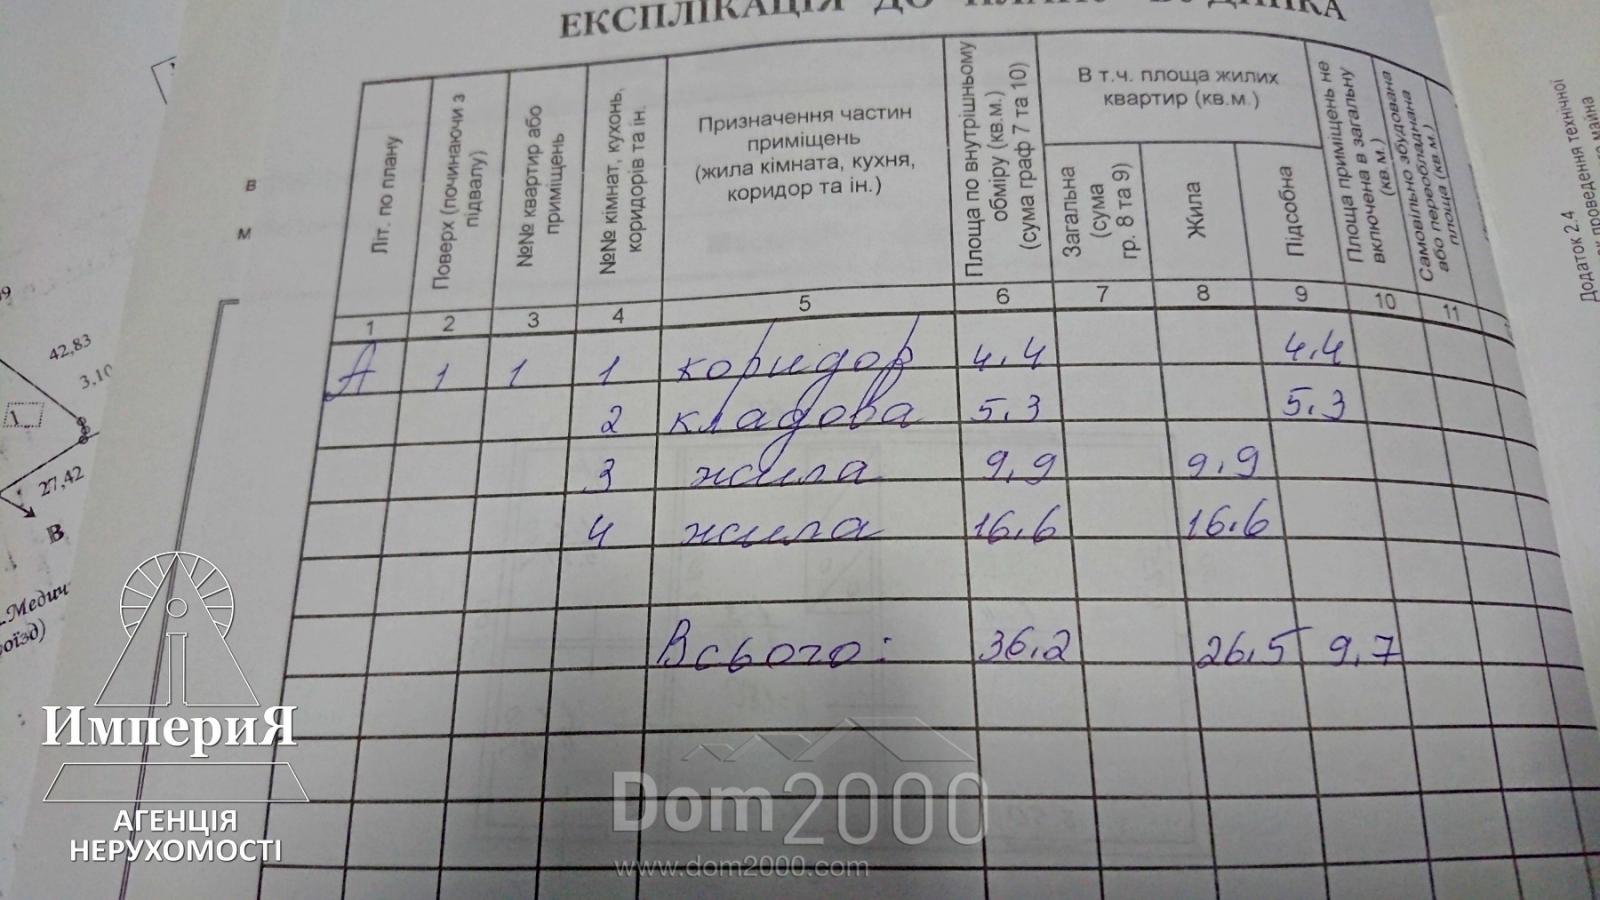 ЕКСПЛІКАЦІЯ ДО ПЛАНУ БУДИНКА
Літ. по плану
Поверх (починаючи з
підвалу)
№№ квартир або
приміщень
№№ кімнат, кухонь,
коридорів та ін.
Призначення частин
приміщень
(жила кімната, кухня,
коридор та ін.)
Площа по внутрішньому
обміру (кв.м.)
(сума граф 7 та 10)
В т.ч. площа жилих
квартир (кв.м.)
Загальна
(сума
гр. 8 та 9)
Жила
Підсобна
Площа приміщень не
включена в загальну
(кв.м.)
Самовільно збудована
або переобладнана
площа (кв.м.)
1 2 3 4 5 6 7 8 9 10 11
А 1 1 1 коридор 4.4 4.4
2 кладова 5.3 5.3
3 жила 9,9 9,9
4 жила 16.6 16.6
Всього: 36.2 26.5 9,7
В
М
42,83
3,10
27,42
В
Додаток 2.4
проведення технічної
майна
ИмпериЯ
АГЕНЦІЯ
НЕРУХОМОСТІ
Dom2000
www.dom2000.com